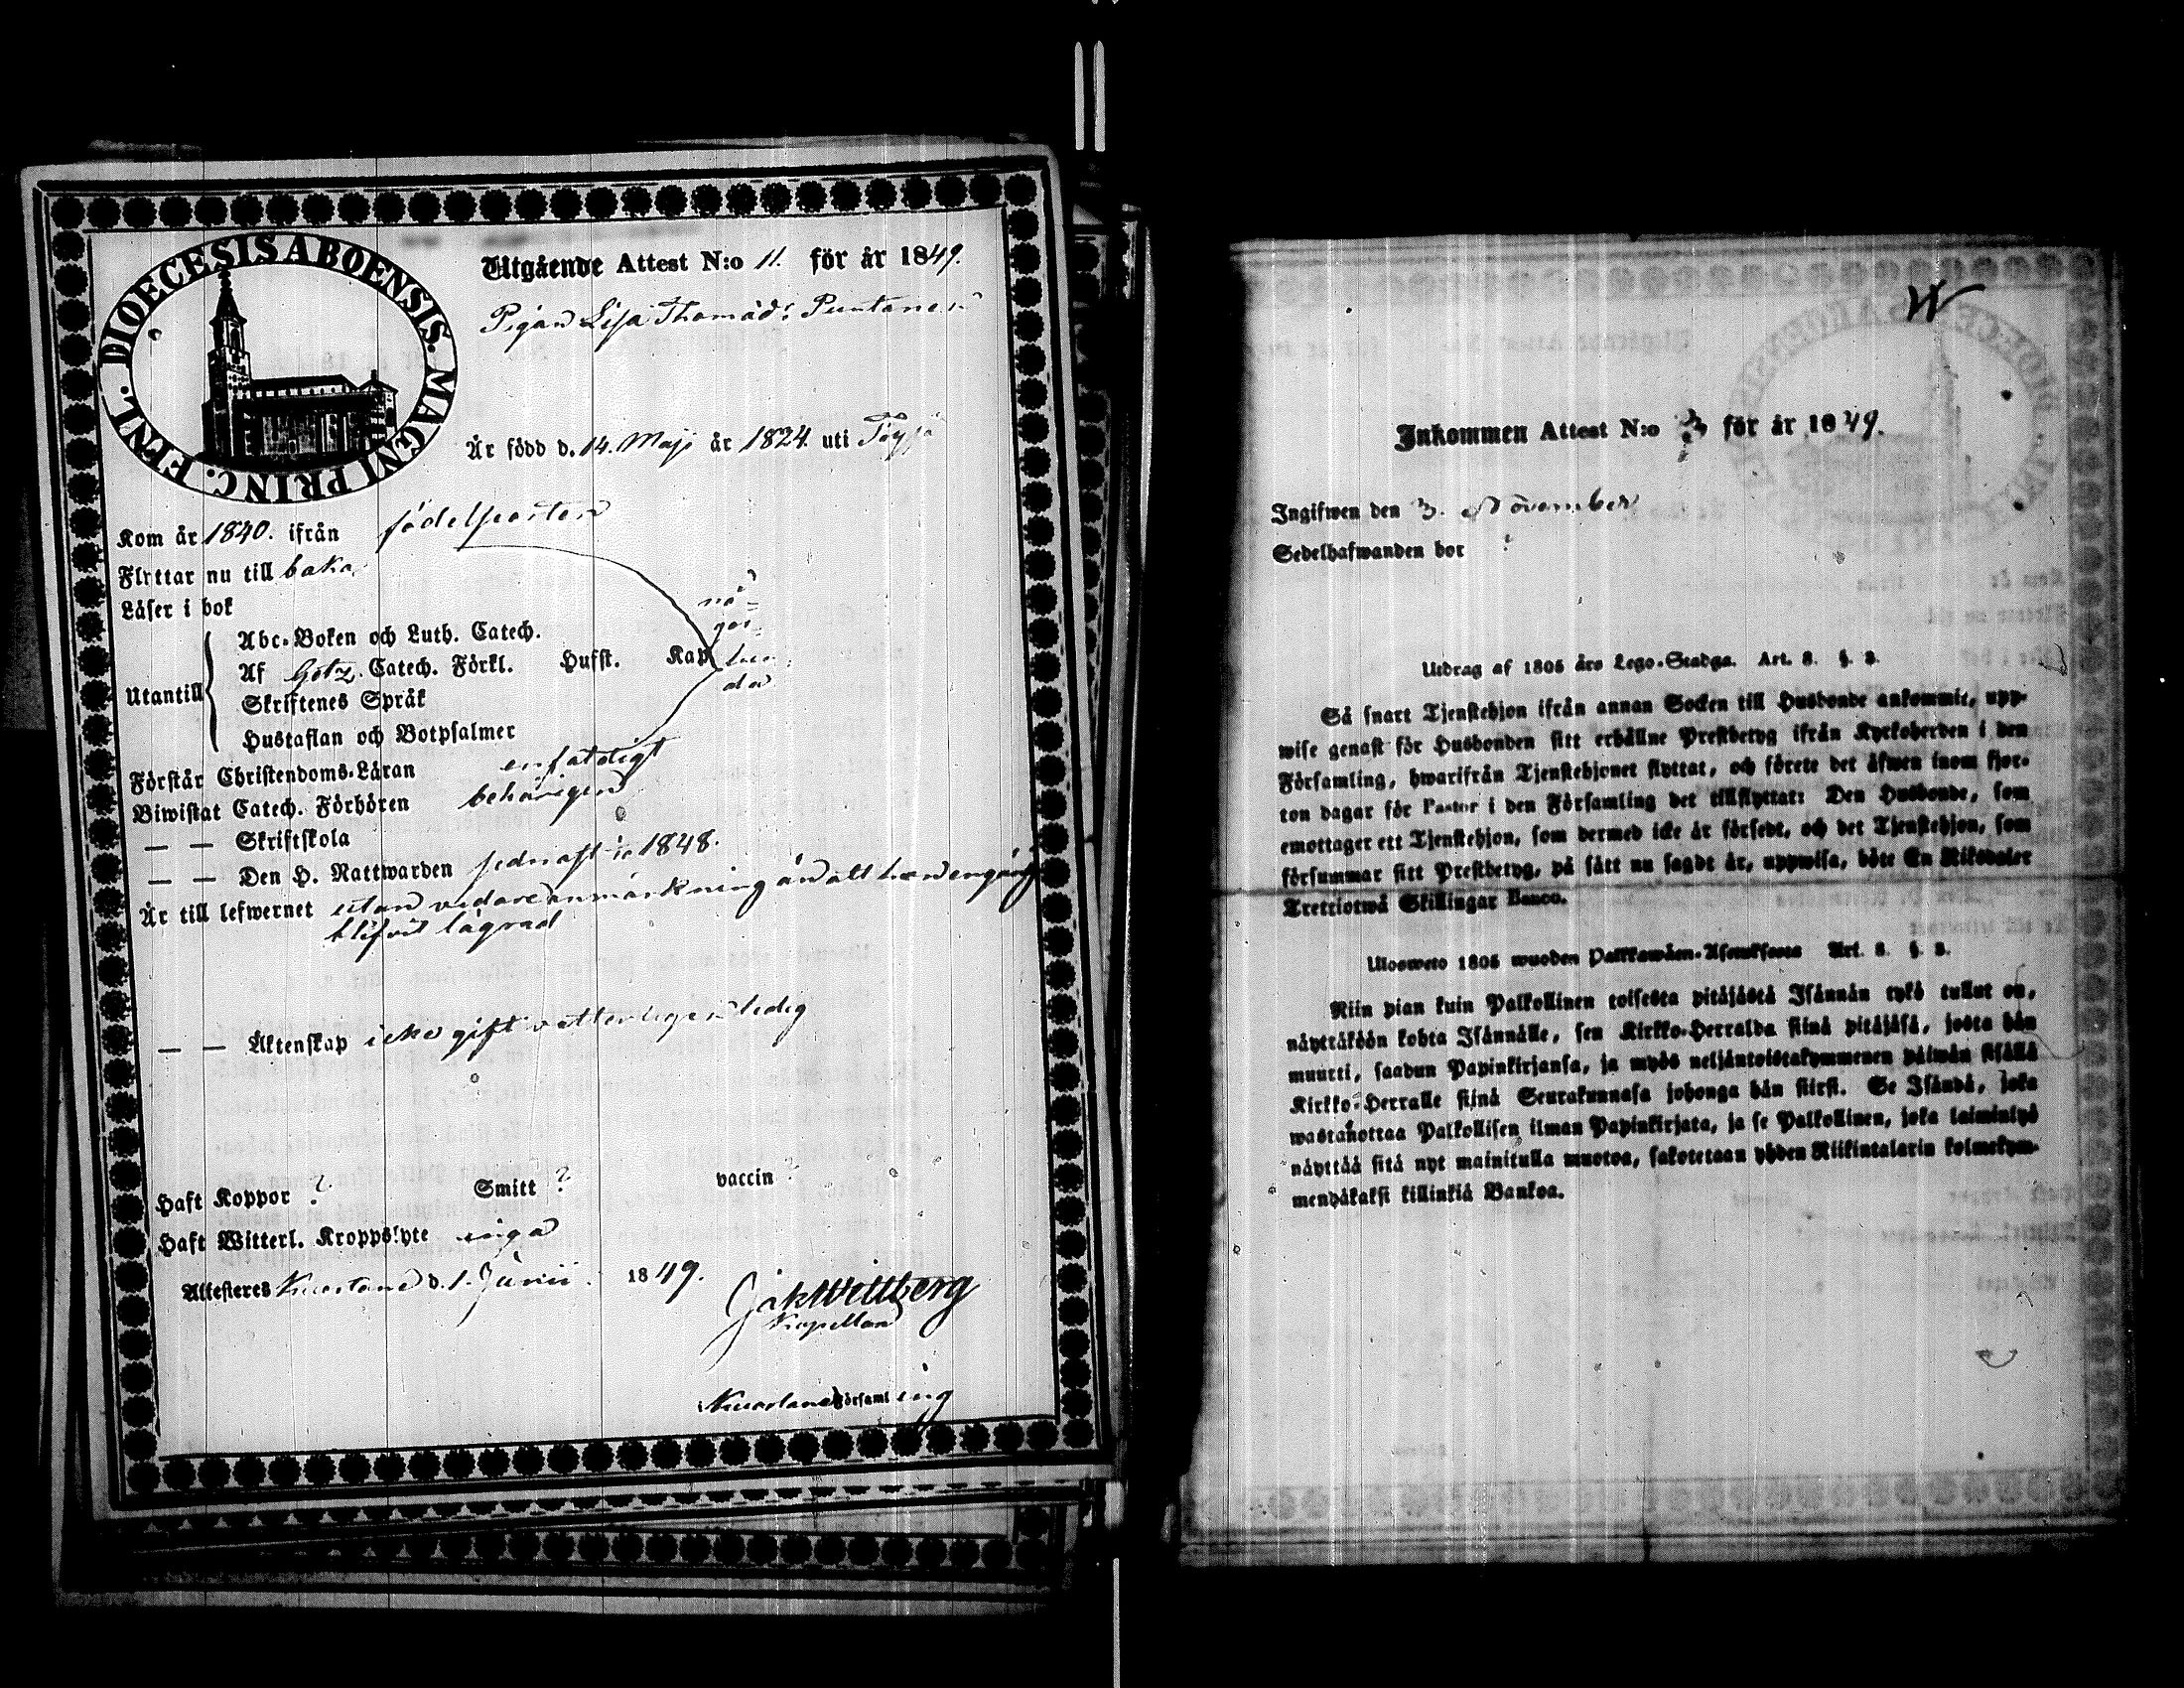 DIOECESIS ABOENSIS. MAGNI PRINC. FINL.
Utgående Attest N:o 11. för år 1849.
Pigan Lisa Thomasd: Puntanen
Är född d. 14. Maji år 1824 uti Töysä
Kom år 1840. ifrån födelseorten
Flyttar nu till baka
Läser i bok
Utantill
Abc-Boken och Luth. Catech.
Af Götz Catech. Förkl. Hufst. Kap
Skriftenes Språk
Hustaflan och Botpsalmer
nå-
gor-
lun-
da
Förstår Christendoms-Läran enfaldigt
Biwistat Catech. Förhören behörigen
— — Skriftskola
— — Den H. Nattwarden sednast i 1848.
Är till lefwernet utan vidare anmärkning än att hon engång
blifvit lägrad
— — Äktenskap icke gift vetterligen ledig
Haft Koppor ? Smitt ? vaccin
Haft Witterl. Kroppslyte inga
Attesteres Kuortane d. 1. Junii. 1849.
Jak Wittberg
Kapellan
i Kuortane Församling
Inkommen Attest N:o för år 1849.
Ingifwen den 3. November
Sedelhafwanden bor
Utdrag af 1805 års Lego-Stadga. Art. 8. §. 3.
Så snart Tjenstehjon ifrån annan Socken till Husbonde ankommit, upp-
wise genast för Husbonden sitt erhållne Prestbetyg ifrån Kyrkoherden i den
Församling, hwarifrån Tjenstehjonet flyttat, och förete det äfwen inom fjor-
ton dagar för Pastor i den Församling det tillflyttat: Den Husbonde, som
emottager ett Tjenstehjon, som dermed icke är försedt, och det Tjenstehjon, som
försummar sitt Prestbetyg, på sätt nu sagdt är, uppwisa, böte En Riksdaler
Tretriotwå Skillingar Banco.
Ulosweto 1805 wuoden Palkkawäen-Asetuksesta Art. 8. §. 3.
Niin pian kuin Palkollinen toisesta pitäjästä Isännän tykö tullut on,
näyttäköön kohta Isännälle, sen Kirkko-Herralda siinä pitäjäsä, josta hän
muutti, saadun Papinkirjansa, ja myös neljäntoistakymmenen päiwän sisällä
Kirkko-Herralle siinä Seurakunnasa johonga hän siirsi. Se Isändä, joka
wastanottaa Palkollisen ilman Papinkirjata, ja se Palkollinen, joka laiminlyö
näyttää sitä nyt mainitulla muotoa, sakotetaan yhden Riikintalarin kolmekym-
mendäkaksi killinkiä Bankoa.